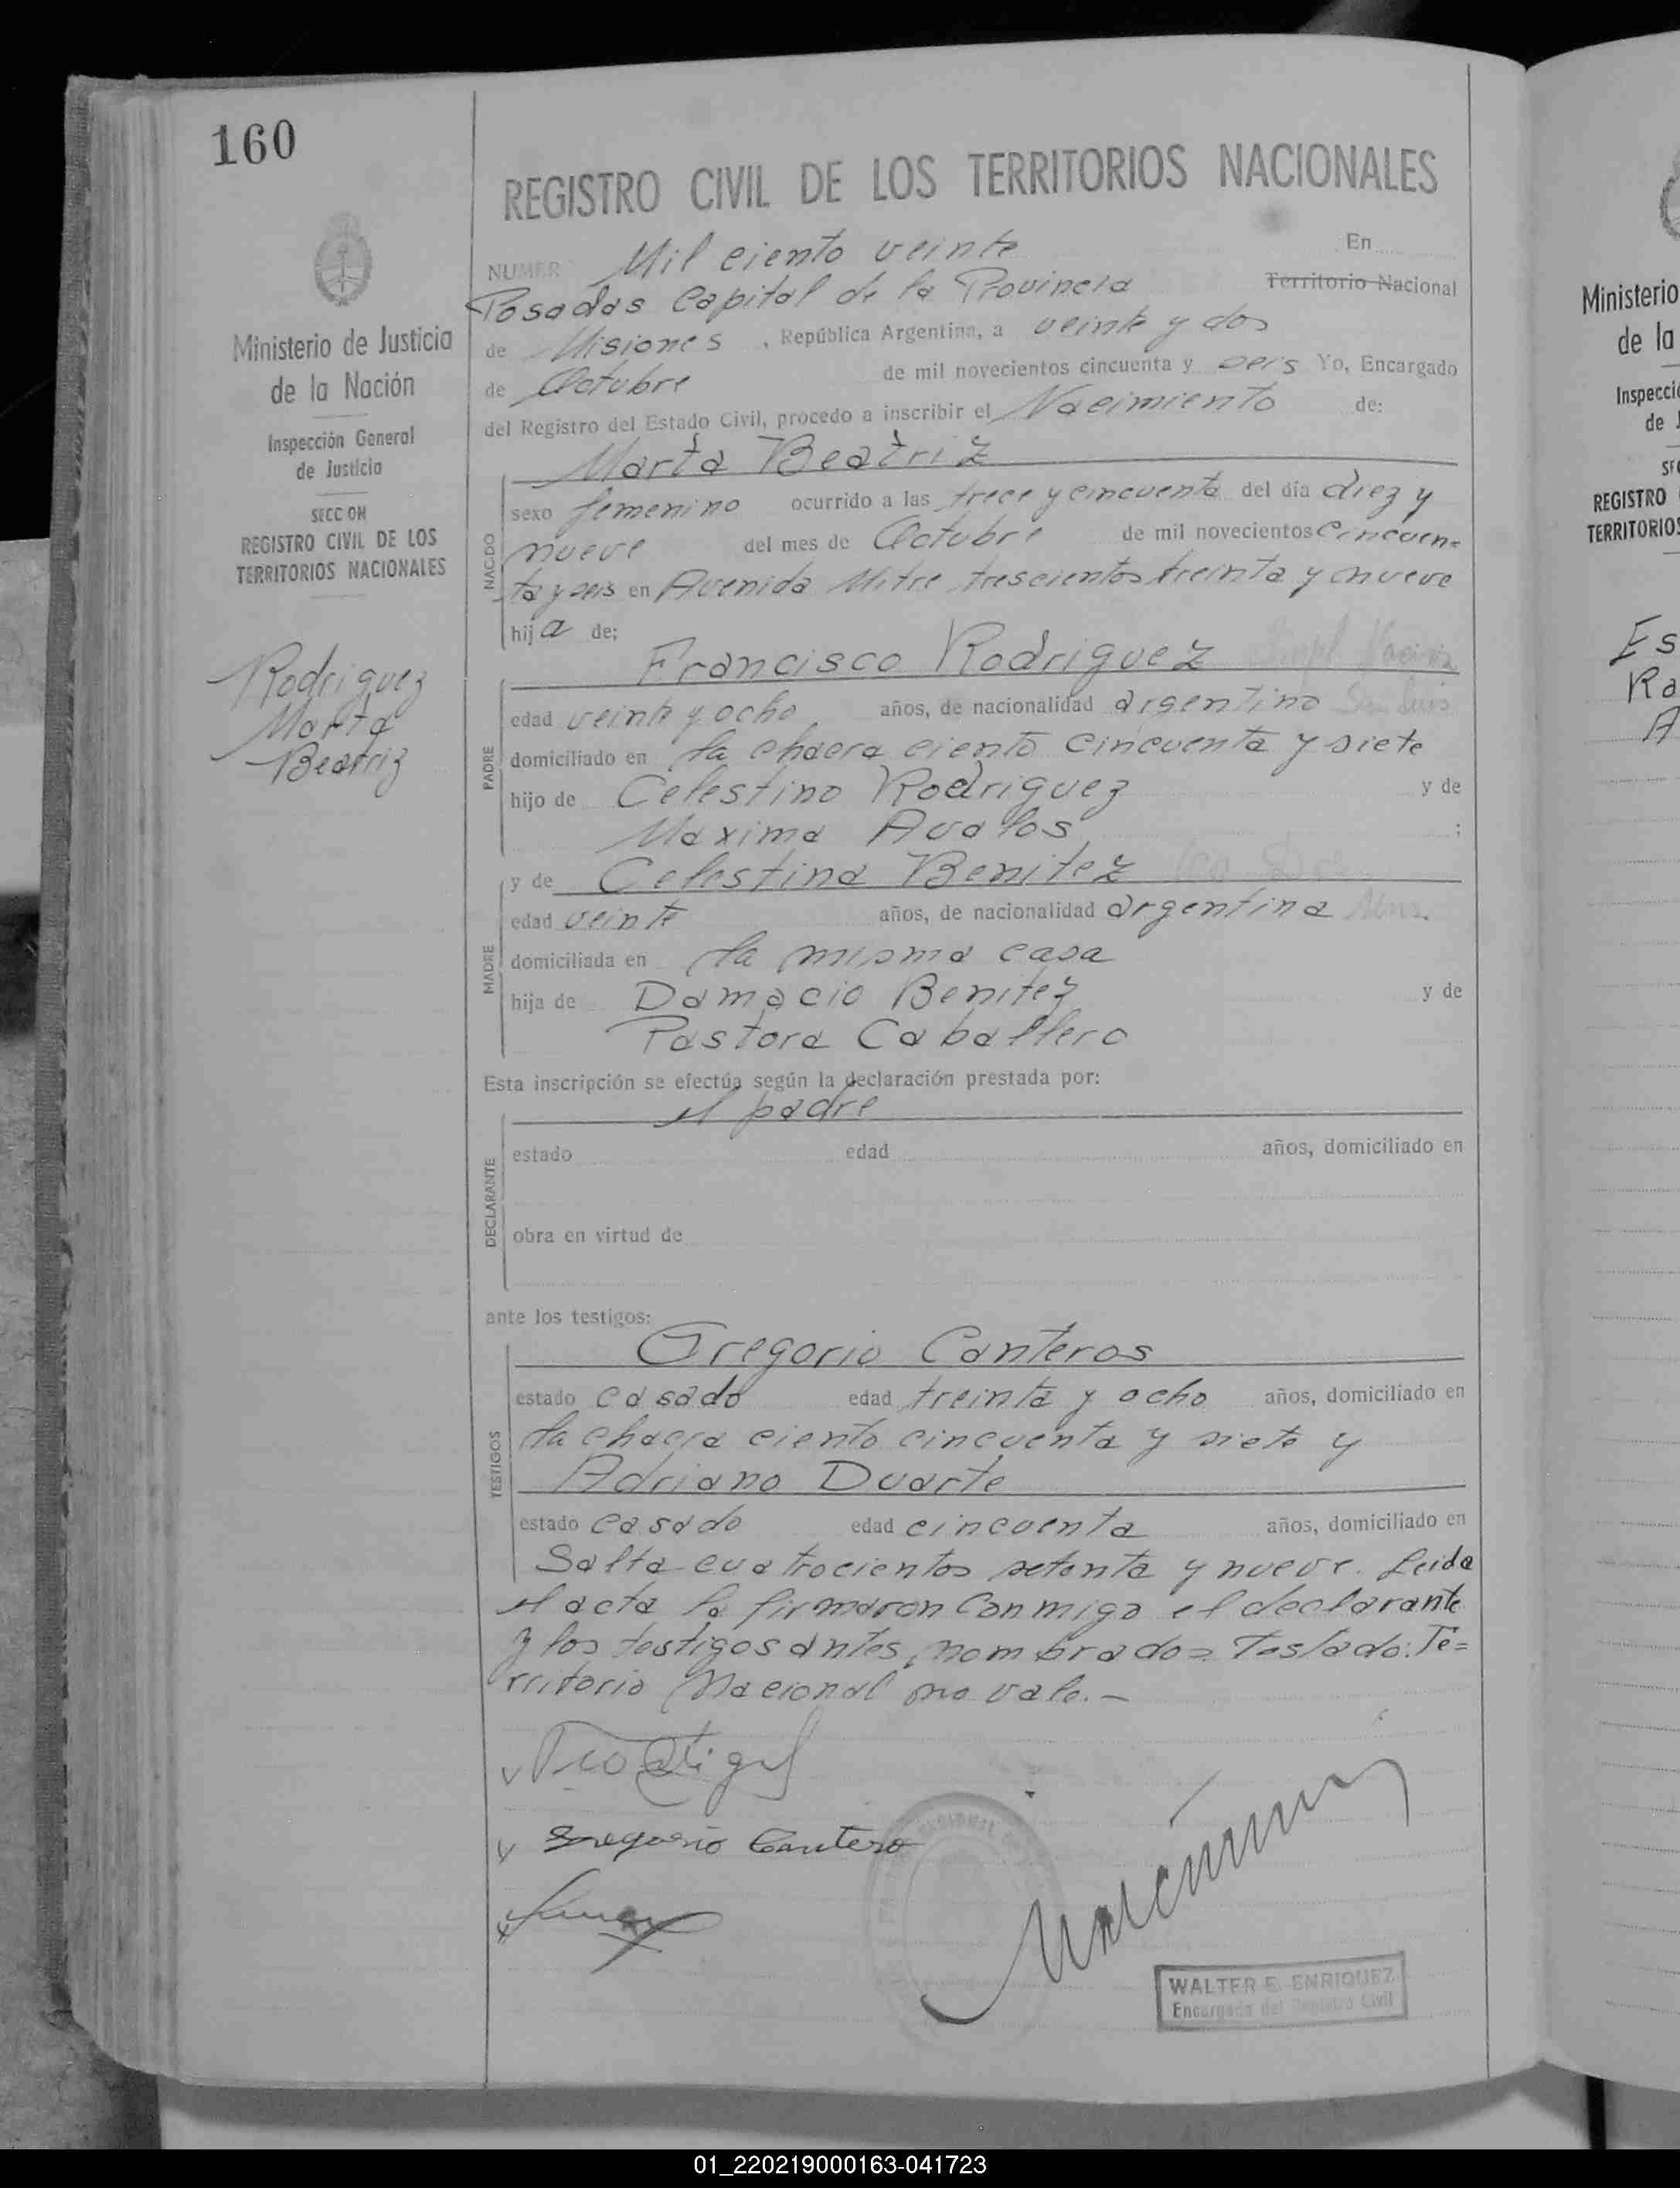 160
REGISTRO CIVIL DE LOS TERRITORIOS NACIONALES
Ministerio de Justicia
de la Nación
Inspección General
de Justicia
SECC ON
REGISTRO CIVIL DE LOS
TERRITORIOS NACIONALES
Rodriguez
Marta
Beatriz
NUMER Mil ciento veinte En
Posadas Capital de la Provincia Territorio Nacional
de Misiones, República Argentina, a veinte y dos
de Octubre de mil novecientos cincuenta y seis Yo, Encargado
del Registro del Estado Civil, procedo a inscribir el Nacimiento de:
Marta Beatriz
NACIDO
sexo femenino ocurrido a las trece y cincuenta del día diez y
nueve del mes de Octubre de mil novecientos cincuen=
ta y seis en Avenida Mitre trescientos treinta y nueve
hija de;
Francisco Rodriguez
PADRE
edad veinte y ocho años, de nacionalidad argentino San Luis
domiciliado en la chacra ciento cincuenta y siete
hijo de Celestino Rodriguez y de
Maxima Avalos ;
y de Celestina Benitez
MADRE
edad veinte años, de nacionalidad argentina Mns.
domiciliada en la misma casa
hija de Damacio Benitez y de
Pastora Caballero
Esta inscripción se efectúa según la declaración prestada por:
el padre
DECLARANTE
estado edad años, domiciliado en
obra en virtud de
ante los testigos:
Gregorio Canteros
TESTIGOS
estado casado edad treinta y ocho años, domiciliado en
la chacra ciento cincuenta y siete y
Adriano Duarte
estado casado edad cincuenta años, domiciliado en
Salta cuatrocientos setenta y nueve. Leida
el acta la firmaron conmigo el declarante
y los testigos antes nombrados= Testado: Te=
rritorio Nacional no vale.-
Gregorio Cantero
WALTER E. ENRIQUEZ
Encargado del Registro Civil
Ministerio
de la
Inspecció
de J
REGISTRO
TERRITORIOS
Es
Ro
A
01_220219000163-041723